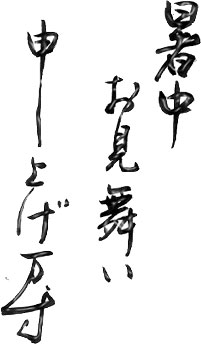 暑中
お見舞い
申し上げ万寿